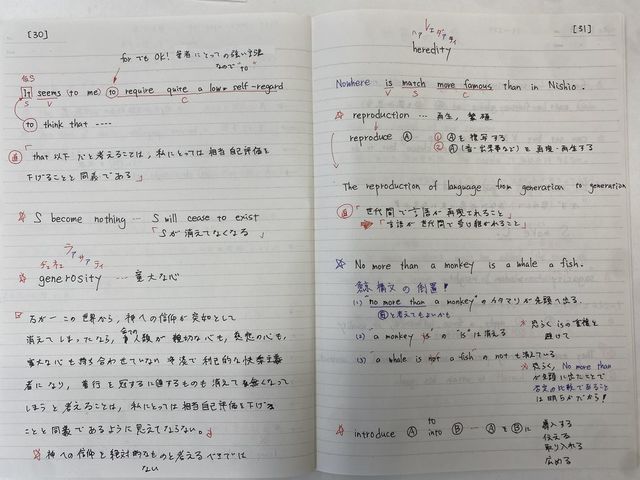 [30]
for でも OK! 筆者にとっての強い主張
なので "to"
仮S
It seems (to me) to require quite a low self-regard
S V C
to think that ----
直 「that 以下 だと考えることは、私にとっては 相当自己評価を
下げることと 同義である」
☆ S become nothing … S will cease to exist
「Sが 消えてなくなる」
ジェネェ ラァ サァ ティ
☆ generosity … 寛大な心
万が一 この世から、神への信仰が 突如として
消えてしまったなら、全ての人類が 親切な心も、慈悲の心も、
寛大な心も 持ち合わせていない
利己的な 快楽主義
者になり、
消えて無くなって
しまう と考えることは、私にとっては 相当自己評価を下げる
ことと 同義であるように思えてならない。
☆ 神への信仰を 絶対的なものと考えるべきでは
ない
[31]
ヘァ レェ ダァ ティ
heredity
Nowhere is match more famous than in Nishio.
V S C
☆ reproduction … 再生、繁殖
reproduce Ⓐ ① Ⓐを 複写する
② Ⓐ(音・出来事など)を 再現・再生する
The reproduction of language from generation to generation
直 「世代間で 言語が 再現されること」
→ 「言語が 世代間で 受け継がれること」
☆ No more than a monkey is a whale a fish.
鯨構文の 倒置!
(1) "no more than a monkey" のカタマリが 先頭へ出る.
と考えてもよいかも
(2) "a monkey is" の "is" は消える
※ 恐らく is の重複を
避けて
(3) "a whale is not a fish の not も消えている
※ 恐らく、No more than
が先頭に出たことで
否定の比較であること
は 明らかだから!
☆ introduce Ⓐ to
into Ⓑ … Ⓐを Ⓑに 導入する
伝える
取り入れる
広める